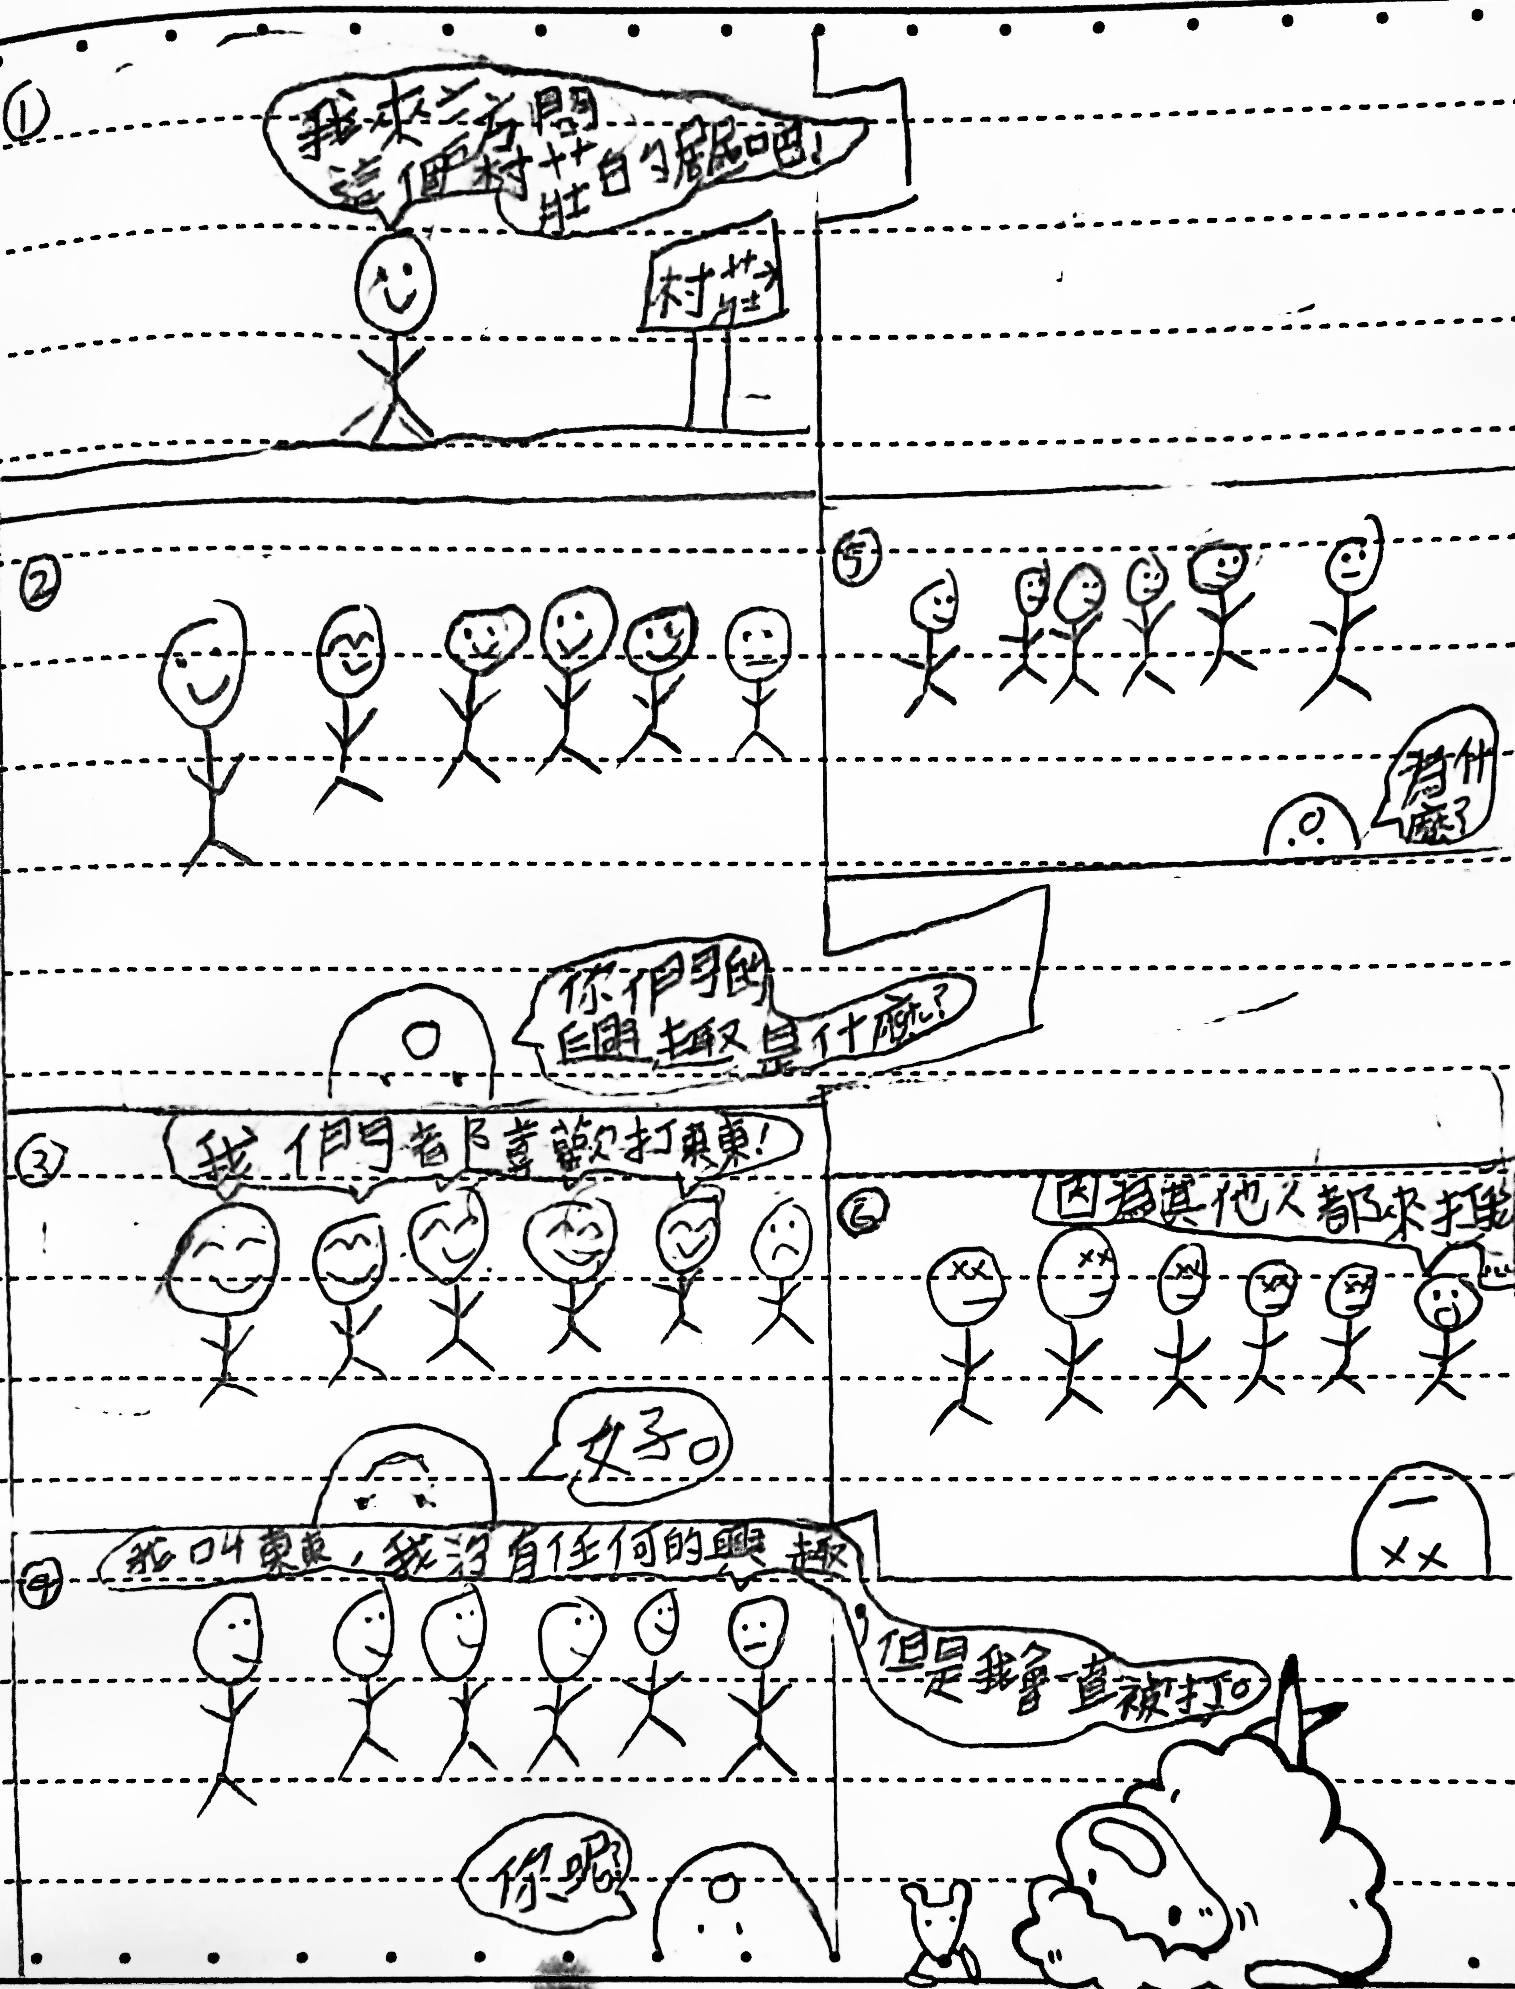 ①
我來訪問
這個村莊的屁吧!
村莊
②
你們的
興趣是什麼?
③
我們都喜歡打東東!
好。
④
我叫東東,我沒有任何的興趣,
但是我會一直被打。
你呢?
⑤
為什
麼?
⑥
因為其他人都來打我
...